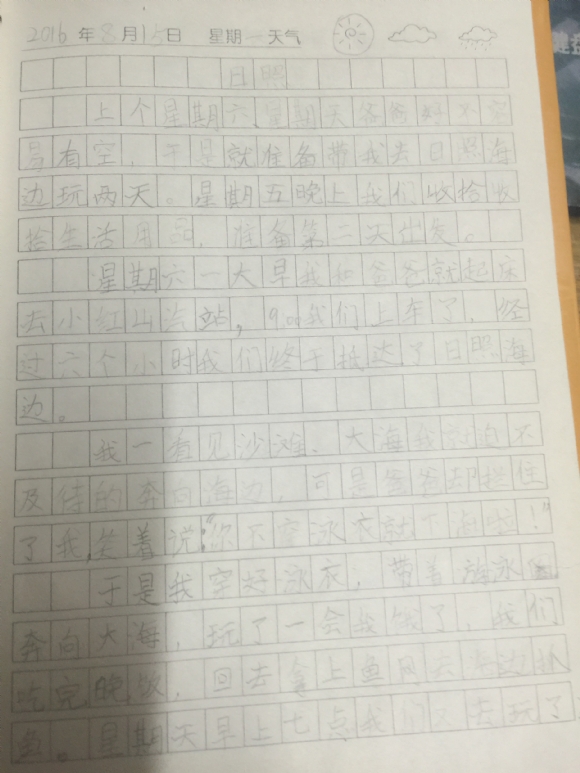 2016年8月15日 星期一天气
日照
上个星期六、星期天爸爸好不容
易有空，于是就准备带我去日照海
边玩两天。星期五晚上我们收拾收
拾生活用品，准备第二天出发。
星期六一大早我和爸爸就起床
去小红山汽站，9:00我们上车了，经
过六个小时我们终于抵达了日照海
边。
我一看见沙滩、大海我就迫不
及待的奔向海边，可是爸爸却拦住
了我，笑着说：“你不穿泳衣就下海啦！”
于是我穿好泳衣，带着游泳
奔向大海，玩了一会我饿了，我们
吃完晚饭，回去拿上鱼网去海边抓
鱼。星期天早上七点我们又去玩了